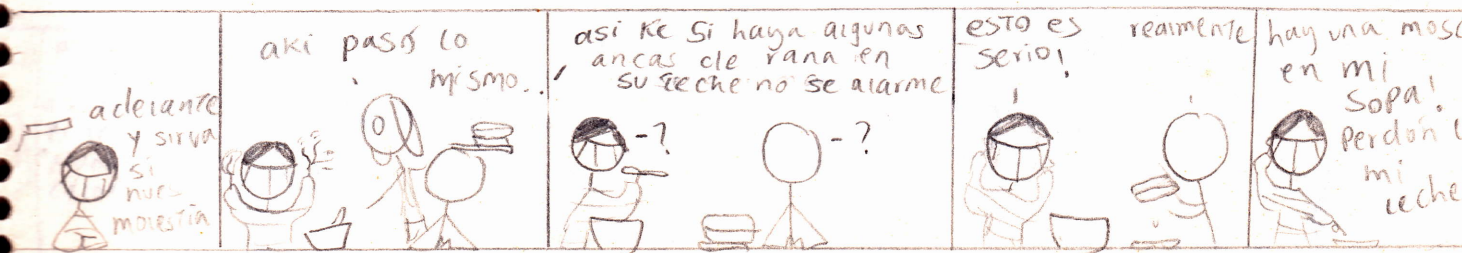 adelante
y sirva
si
nues
molestia
aki pasó lo
mismo..
asi ke si haya algunas
ancas de rana en
su leche no se alarme
-?
-?
esto es realmente
serio!
hay una mosc
en mi
sopa!
perdón
mi
leche